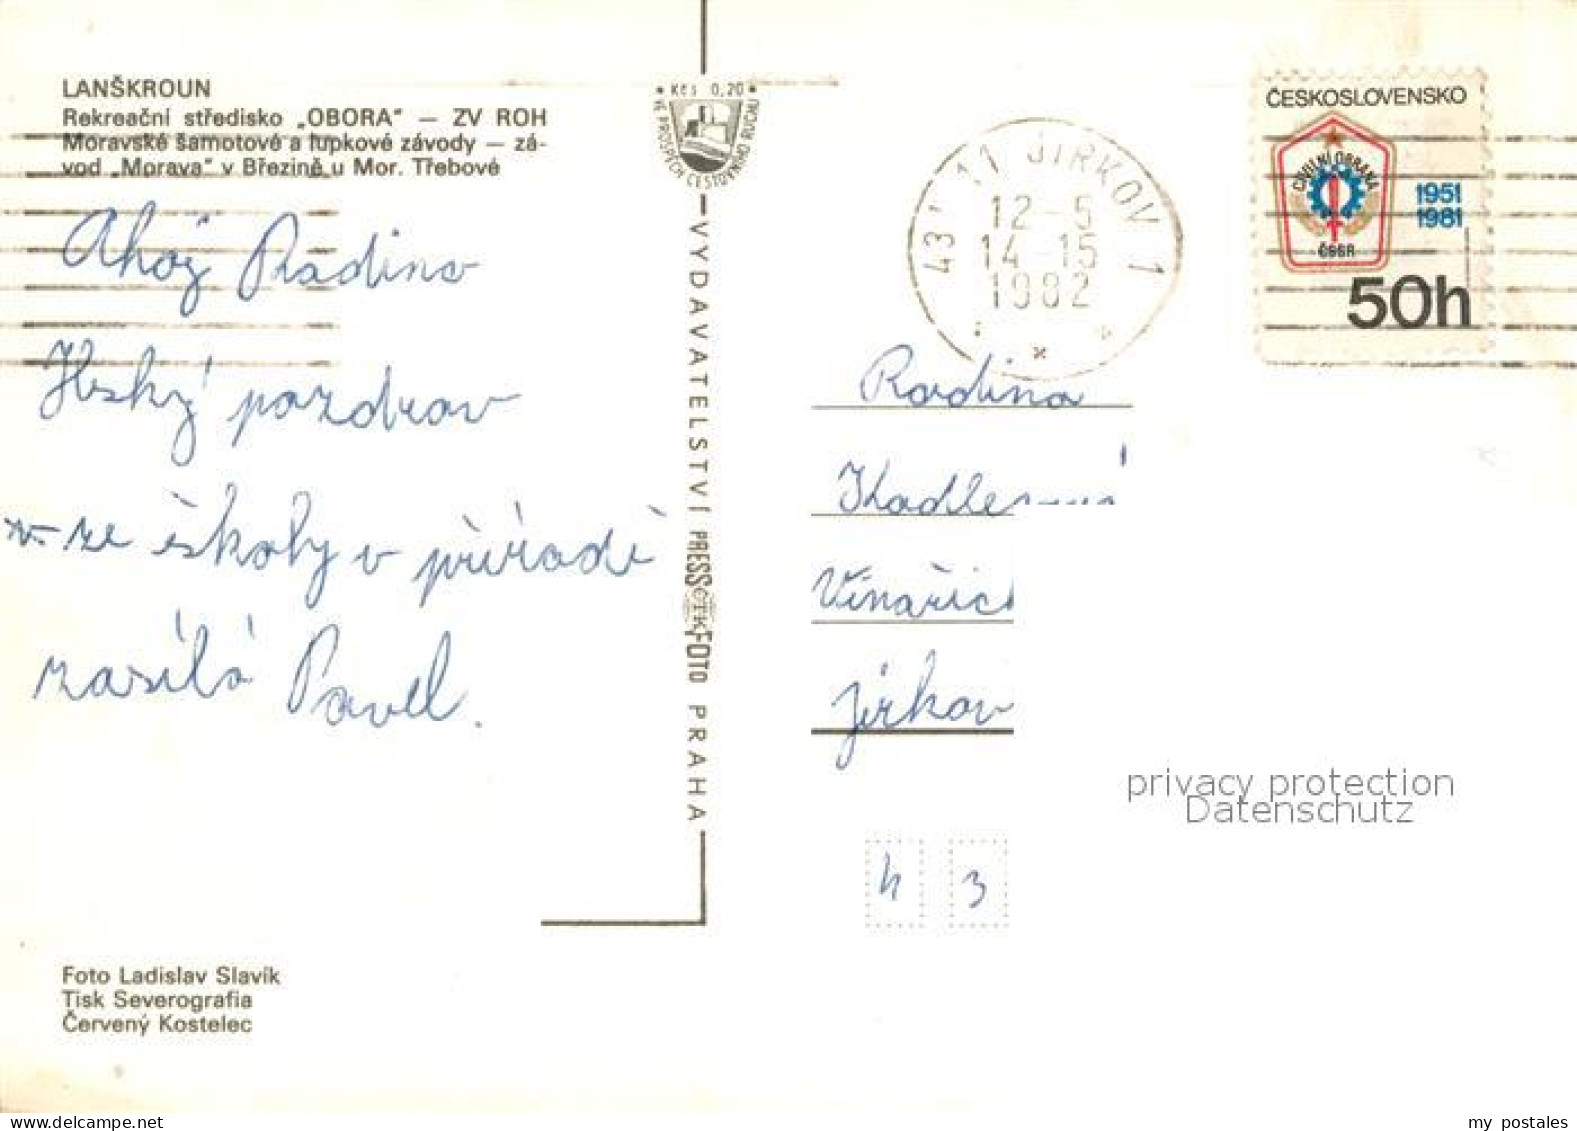 LANŠKROUN
Rekreační středisko „OBORA“ — ZV ROH
Moravské šamotové a lupkové závody — zá-
vod „Morava“ v Březině u Mor. Třebové
Ahoj Radino
Hezký pozdrav
ze školy v přírodě
zasílá Pavel.
Foto Ladislav Slavík
Tisk Severografia
Červený Kostelec
Kčs 0,20
VE PROSPĚCH CESTOVNÍHO RUCHU
VYDAVATELSTVÍ PRESSFOTO PRAHA
ČTK
43 11 JIRKOV 1
12-5
14-15
1982
ČESKOSLOVENSKO
CIVILNÍ OBRANA
ČSSR
1951
1981
50h
Rodina
Vinařic
Jirkov
privacy protection
Datenschutz
4 3
my postales